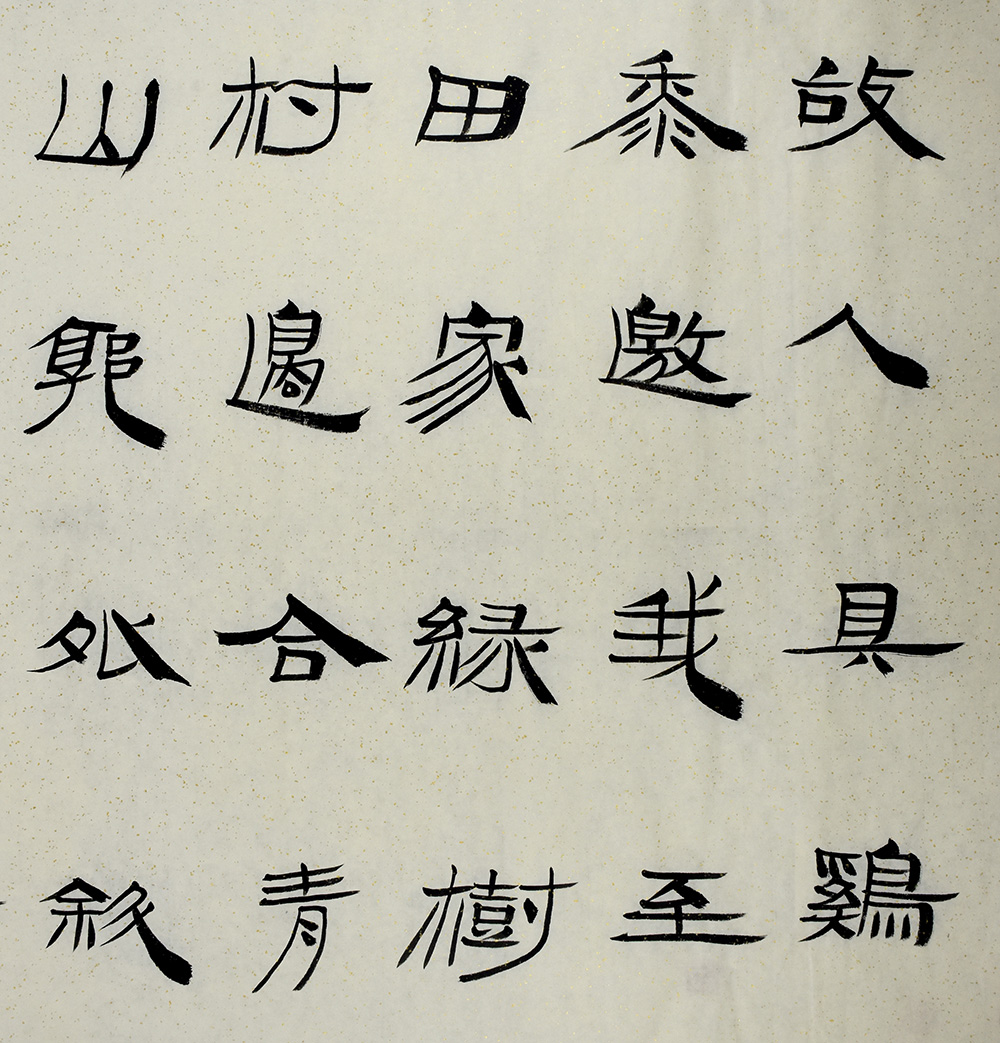 故人具鷄
黍邀我至
田家緑樹
村邊合青
山郭外斜